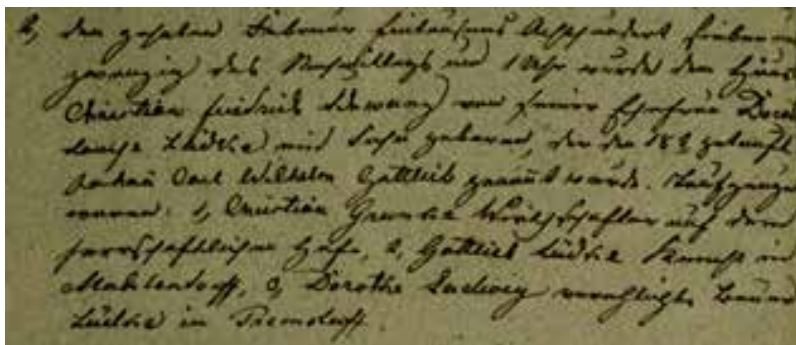 2, den zehnten Februar Eintausend Achthundert sieben u
zwanzig des Nachmittags um 1 Uhr wurde dem
Christian Friedrich Schwang von seiner Ehefrau Doro
Lüdke ein Sohn geboren, der den 18t getauft
Carl Wilhelm Gottlieb genannt wurde. Taufzeugen
waren: 1, Christian Wirthschafter auf dem
herrschaftlichen Hofe, 2, Gottlieb Lüdke Knecht in
Mahlendorff, 3, Dorothe Ludwig verehlichte Bauer
Lüdke in